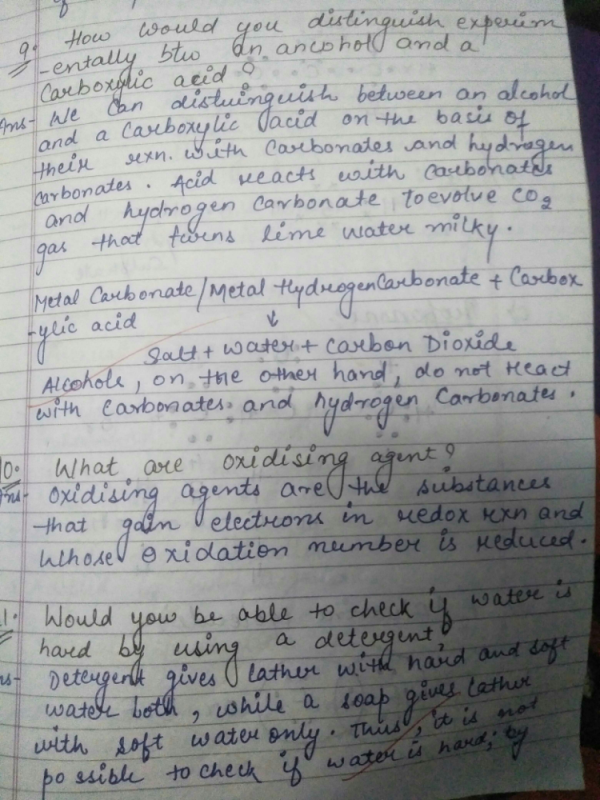 9. How would you distinguish experim
-entally btw an ancohol and a
Carboxylic acid?
Ans- We can distuinguish between an alcohol
and a Carboxylic acid on the basis of
their rxn. with Carbonates and hydrogen
carbonates. Acid reacts with carbonates
and hydrogen carbonate, to evolve CO2
gas that turns lime water milky.
Metal Carbonate/Metal HydrogenCarbonate + Carbox
-ylic acid
↓
Salt + water + Carbon Dioxide
Alcohole, on the other hand, do not react
with Carbonates and hydrogen Carbonates.
10. What are oxidising agent?
Ans- Oxidising agents are the substances
that gain electrons in redox rxn and
whose oxidation number is reduced.
11. Would yow be able to check if water is
hard by using a detergent?
Ans- Detergent gives lather with hard and soft
water both, while a soap gives lather
with soft water only. Thus, it is not
possible to check if water is hard, by